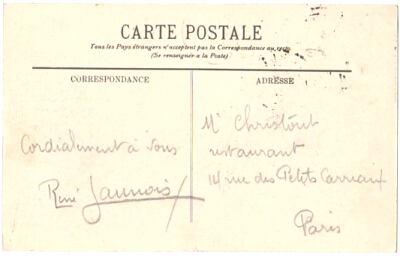 CARTE POSTALE
Tous les Pays étrangers n'acceptent pas la Correspondance au recto
(Se renseigner à la Poste)
CORRESPONDANCE
ADRESSE
Cordialement à vous
René
Mr Christout
restaurant
14 rue des Petits Carreaux
Paris